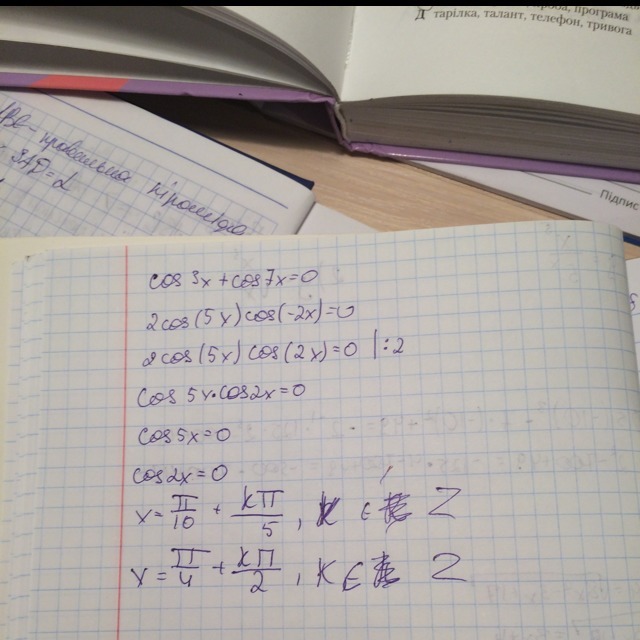 програма
тарілка, талант, телефон, тривога
Підпис
cos 3x + cos 7x = 0
2 cos (5x) cos (-2x) = 0
2 cos (5x) cos (2x) = 0 | : 2
cos 5x · cos 2x = 0
cos 5x = 0
cos 2x = 0
x = π/10 + kπ/5 , k ∈ Z
x = π/4 + kπ/2 , k ∈ Z